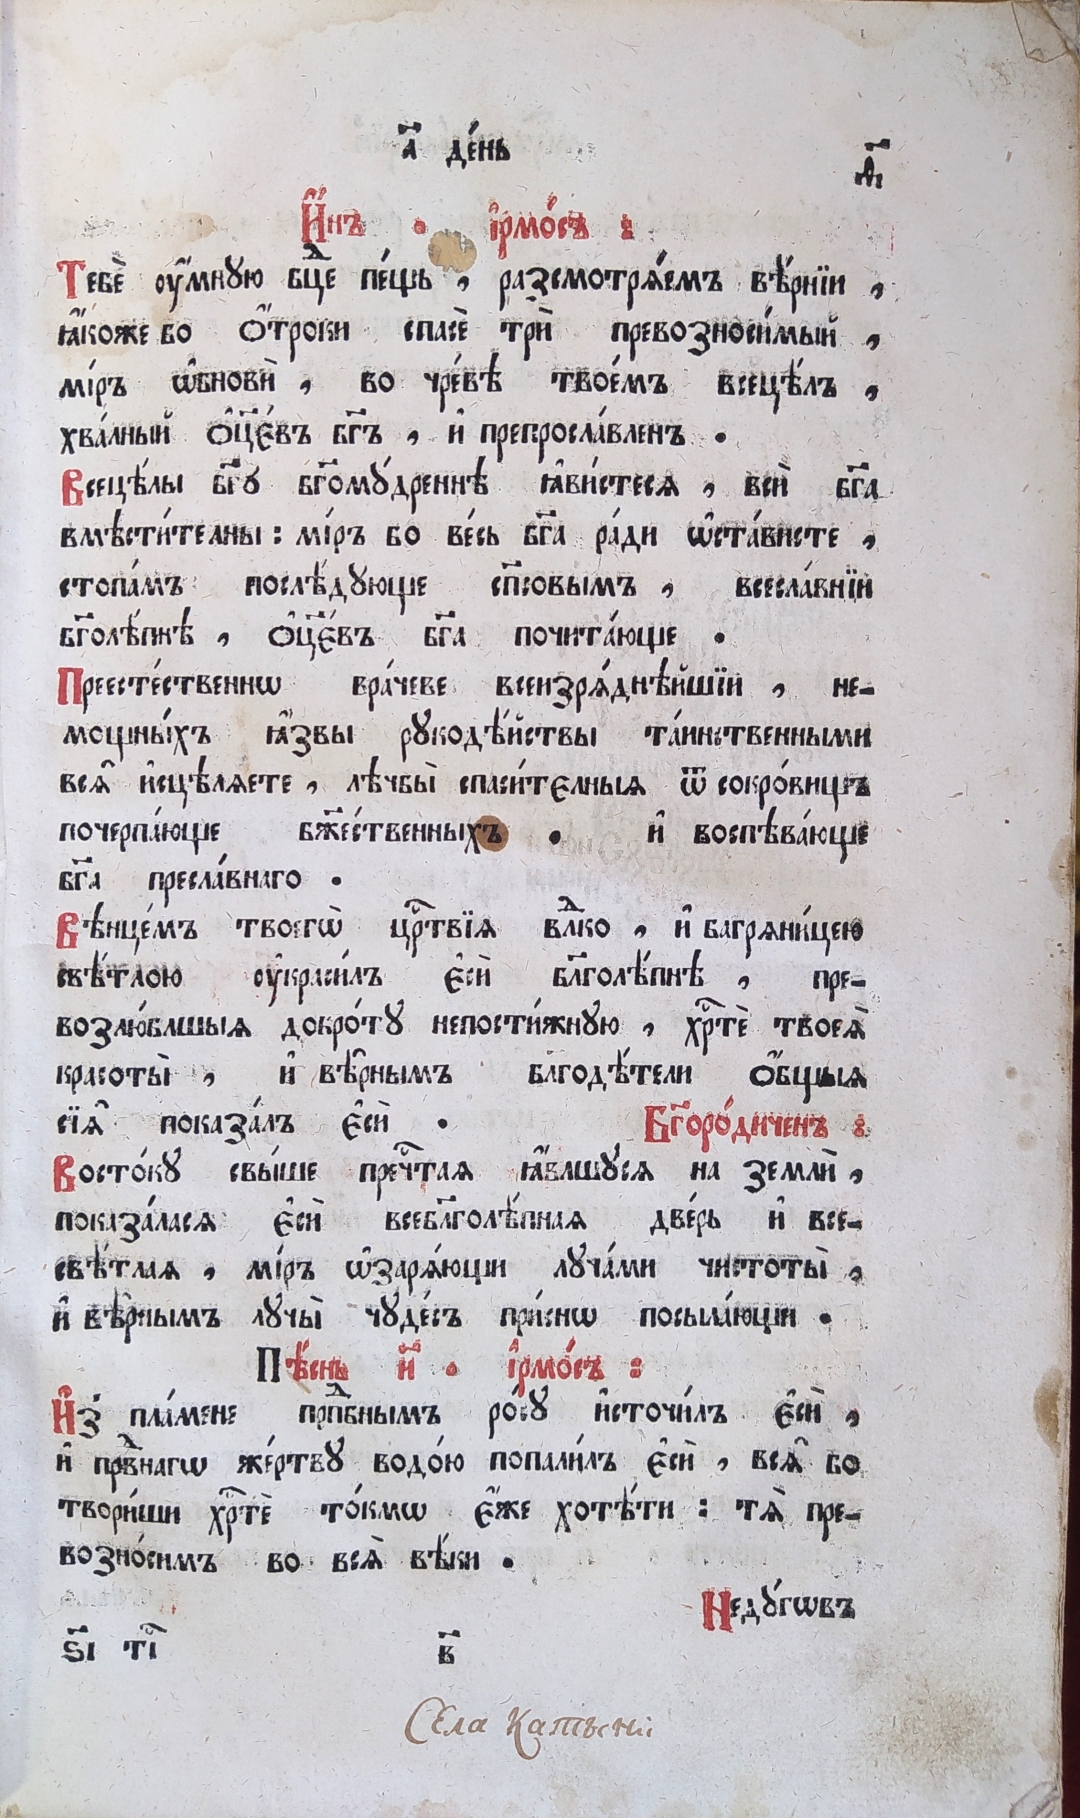 а҃ де́нь
м҃і
И҆́нъ . і҆рмо́съ :
Тебѐ ᲂу҆́мнꙋю бцⷣе пе́щь , разсмотрѧ́емъ вѣ́рнїи ,
ꙗ҆́коже бо ѻ҆́троки спасѐ трѝ превозноси́мый ,
мі́ръ ѡ҆бновѝ , во чре́вѣ твое́мъ всецѣ́лъ ,
хва́лный ѻ҆ц҃е́въ бг҃ъ , и҆ препросла́вленъ .
Всецѣ́лы бг҃ꙋ бг҃омꙋ́дреннѣ ꙗ҆ви́стесѧ , всѝ бг҃а
вмѣсти́телны : мі́ръ бо ве́сь бг҃а ра́ди ѡ҆ста́висте ,
стопа́мъ послѣ́дꙋюще сп҃совымъ , всесла́внїи
бг҃олѣ́пнѣ , ѻ҆ц҃е́въ бг҃а почита́юще .
Преесте́ственнѡ вра́чеве всеизрѧ́днѣйшїи , не-
мощны́хъ ꙗ҆́звы рꙋкодѣ́йствы та́инственными
всѧ̑ и҆сцѣлѧ́ете , лѣчбы̀ спаси́телныѧ ѿ сокро́вищъ
почерпа́юще бж҃е́ственныхъ . и҆ воспѣва́юще
бг҃а пресла́внаго .
Вѣнце́мъ твоегѡ̀ црⷭ҇твїѧ влⷣко , и҆ багрѧни́цею
свѣ́тлою ᲂу҆краси́лъ є҆сѝ бл҃голѣ́пнѣ , пре-
возлю́блшыѧ добро́тꙋ непости́жнꙋю , хрⷭ҇тѐ твоеѧ̀
красоты̀ , и҆ вѣ̑рнымъ бл҃годѣ́тели ѻ҆́бщыѧ
сїѧ̑ показа́лъ є҆сѝ . Бг҃оро́диченъ :
Восто́кꙋ свы́ше пречⷭ҇таѧ ꙗ҆́влшꙋсѧ на землѝ ,
показа́ласѧ є҆сѝ всебл҃голѣ́пнаѧ две́рь и҆ все-
свѣ́тлаѧ , мі́ръ ѡ҆зарѧ́ющи лꙋча́ми чистоты̀ ,
и҆ вѣ̑рнымъ лꙋчы̀ чꙋде́съ при́снѡ посыла́ющи .
Пѣ́снь и҃ . і҆рмо́съ :
И҆з̾ пла́мене прпⷣбнымъ ро́сꙋ и҆сточи́лъ є҆сѝ ,
и҆ прⷣвнагѡ же́ртвꙋ водо́ю попали́лъ є҆сѝ , всѧ̑ бо
твори́ши хрⷭ҇тѐ то́кмѡ є҆́же хотѣ́ти : тѧ̀ пре-
возно́симъ во всѧ̀ вѣ́ки .
Недꙋ́гѡвъ
ѕ҃і тⷭ҇і в҃
Села Катъски